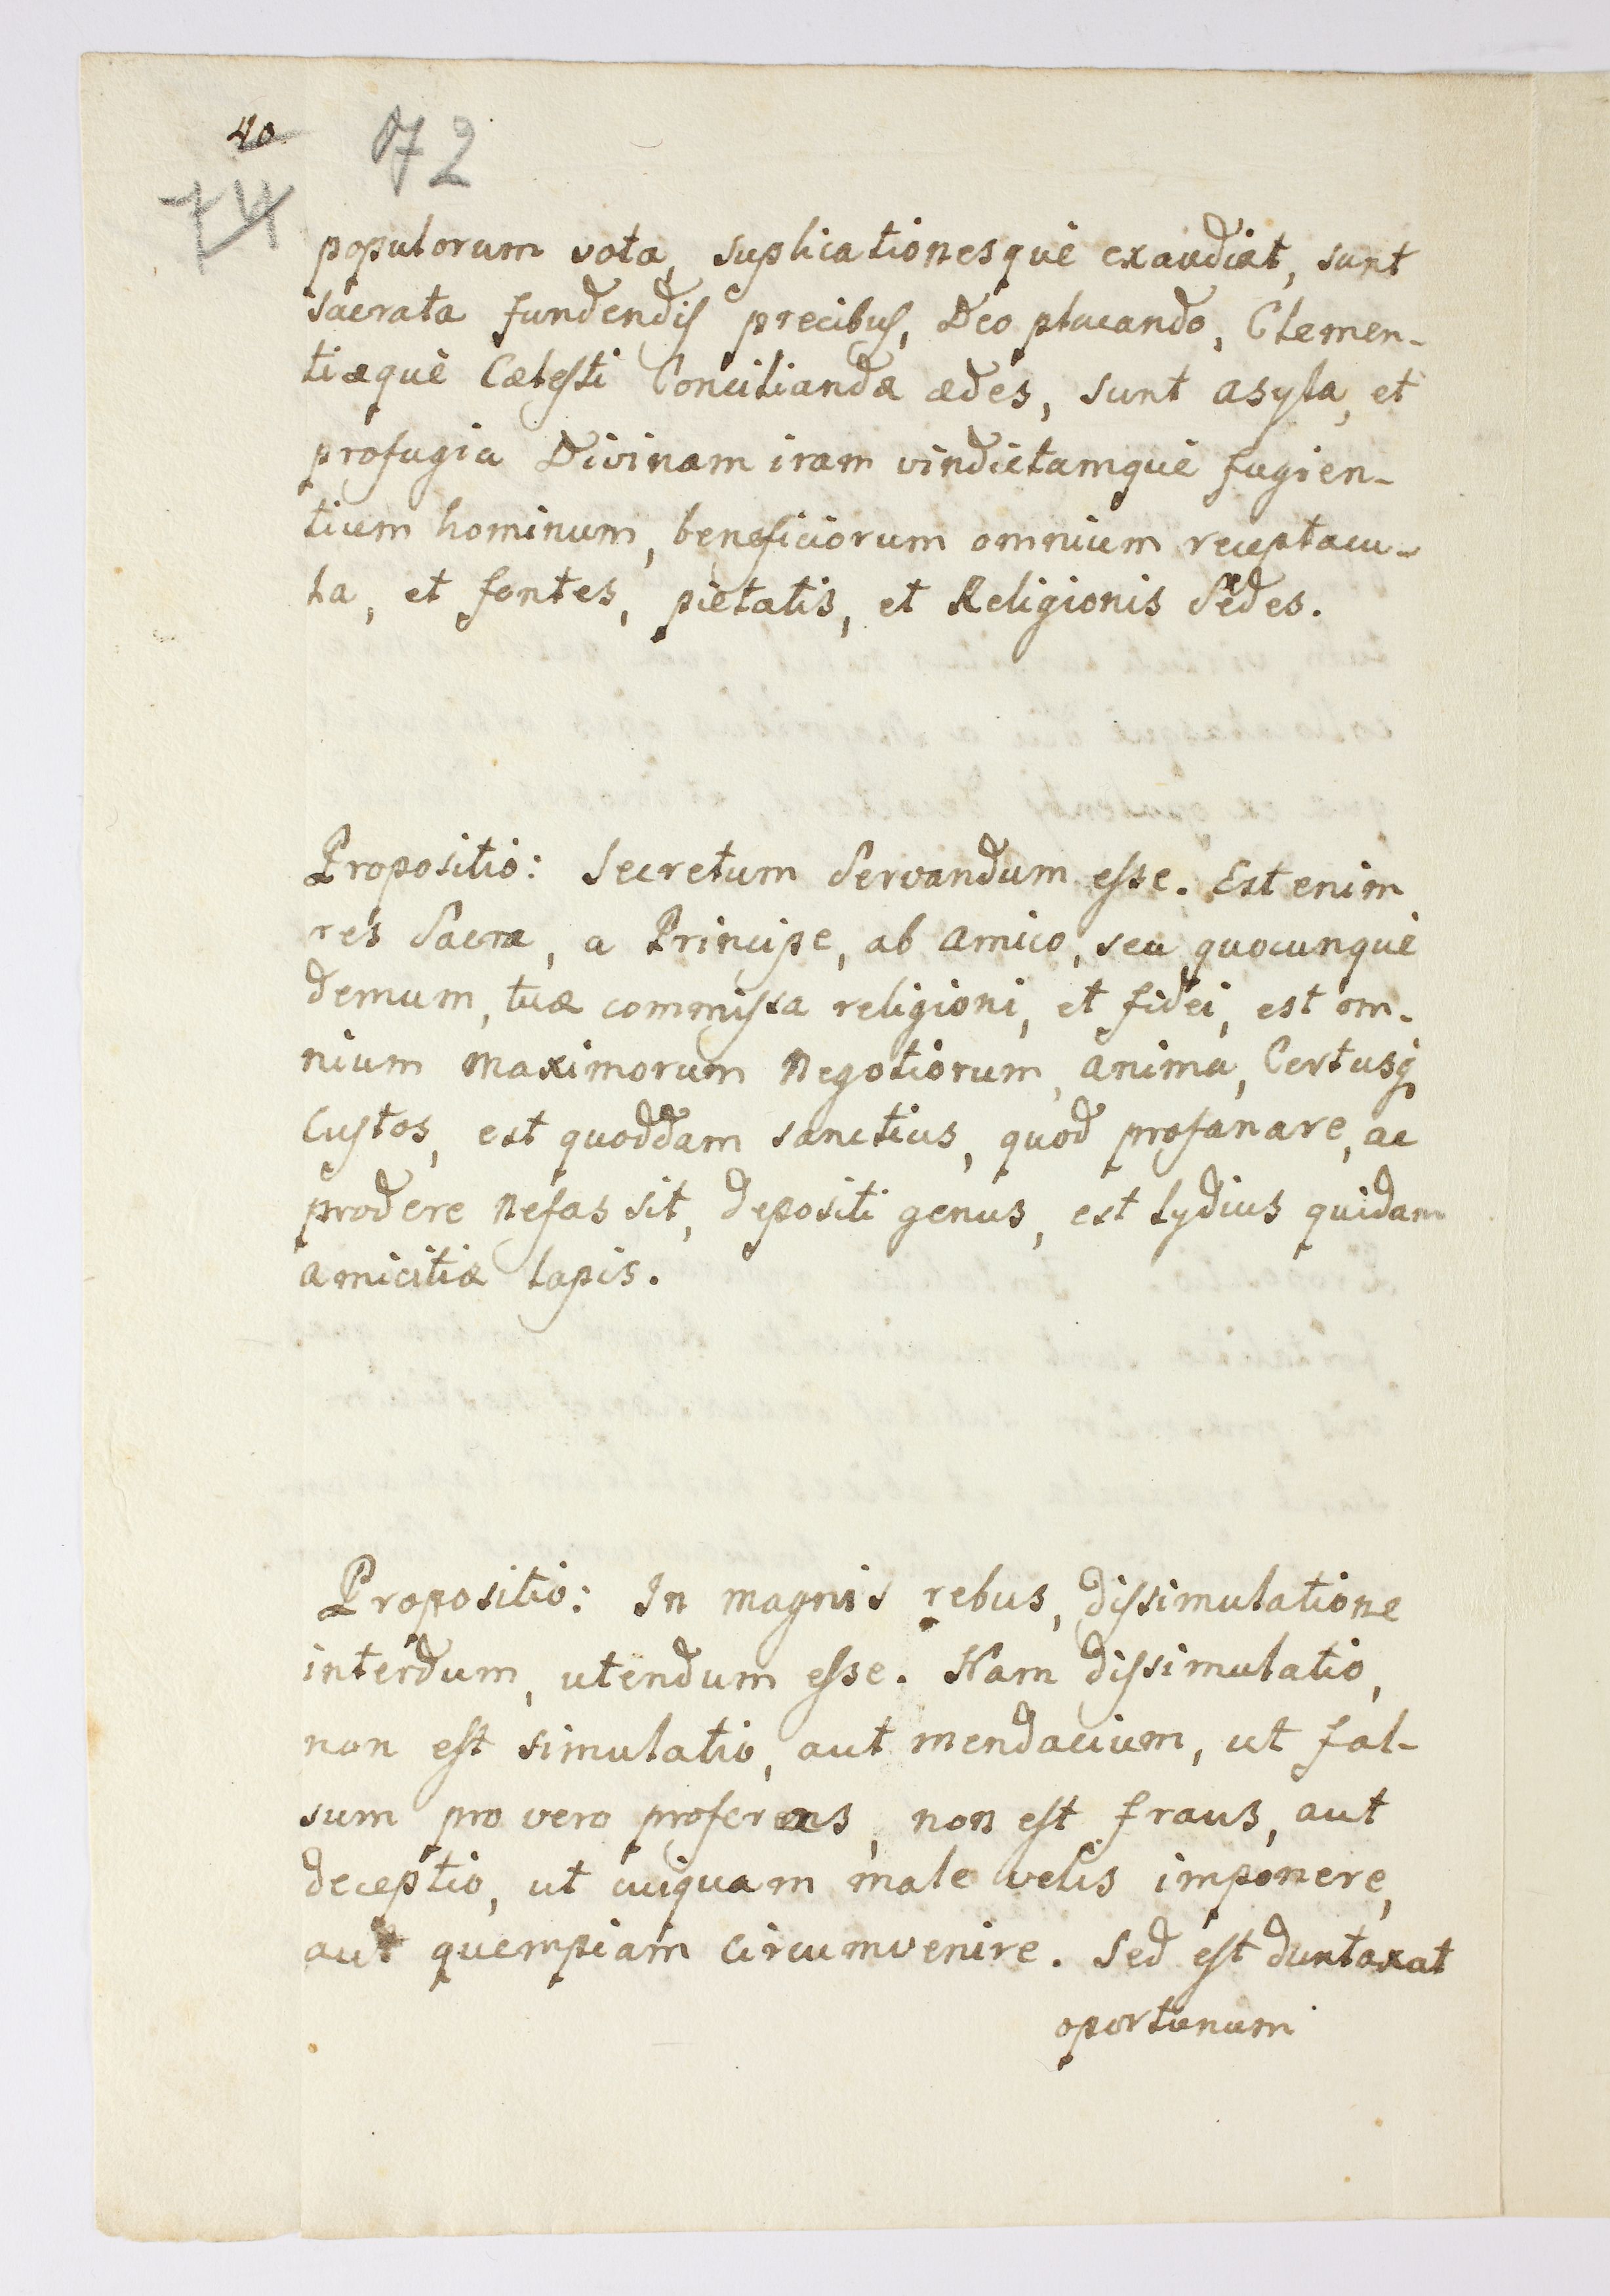 40
72
74
populorum vota, suplicationesquè exaudiat, sunt
sacrata fundendis precibus, Deo placando, Clemen-
tiæquè Cælesti Conciliandæ ædes, sunt asyla, et
profugia Divinam iram vindictamquè fugien-
tium hominum, beneficiorum omnium receptacu-
la, et fontes, pietatis, et Religionis Sedes.
Propositio: Secretum Servandum esse. Est enim
res Sacra, a Principe, ab amico, seu quocunquè
demum, tuæ commissa religioni, et fidei, est om-
nium maximorum negotiorum, anima, Certusq
Custos, est quoddam sanctius, quod profanare, ac
prodere nefas sit, depositi genus, est lydius quidam
amicitiæ lapis.
Propositio: In magnis rebus, dissimulatione
interdum, utendum esse. Nam dissimulatio,
non est simulatio, aut mendacium, ut fal-
sum pro vero proferens, non est fraus, aut
deceptio, ut cuiquam male velis imponere,
aut quempiam circumvenire. Sed est duntaxat
oportunum